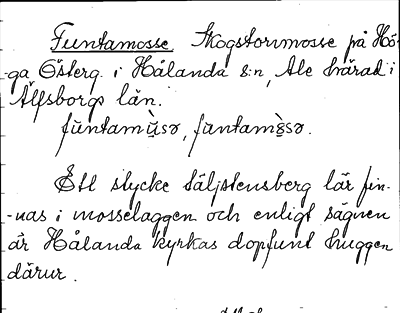 Funtamosse Skogstorvmosse på Hö-
ga Österg. i Hålanda s:n, Ale härad i
Älfsborgs län.
Ett stycke täljstensberg lär fin-
-nas i mosselaggen och enligt sägnen
är Hålanda kyrkas dopfunt huggen
därur.